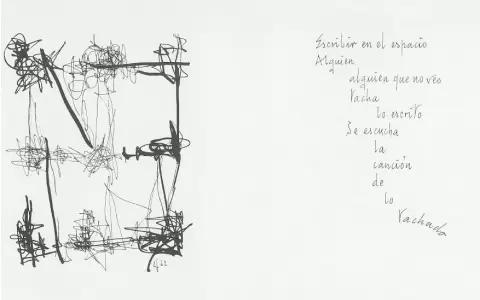 Escribir en el espacio
Alguien
alguien que no vés
Tacha
lo escrito
Se escucha
la
canción
de
lo
Tachado